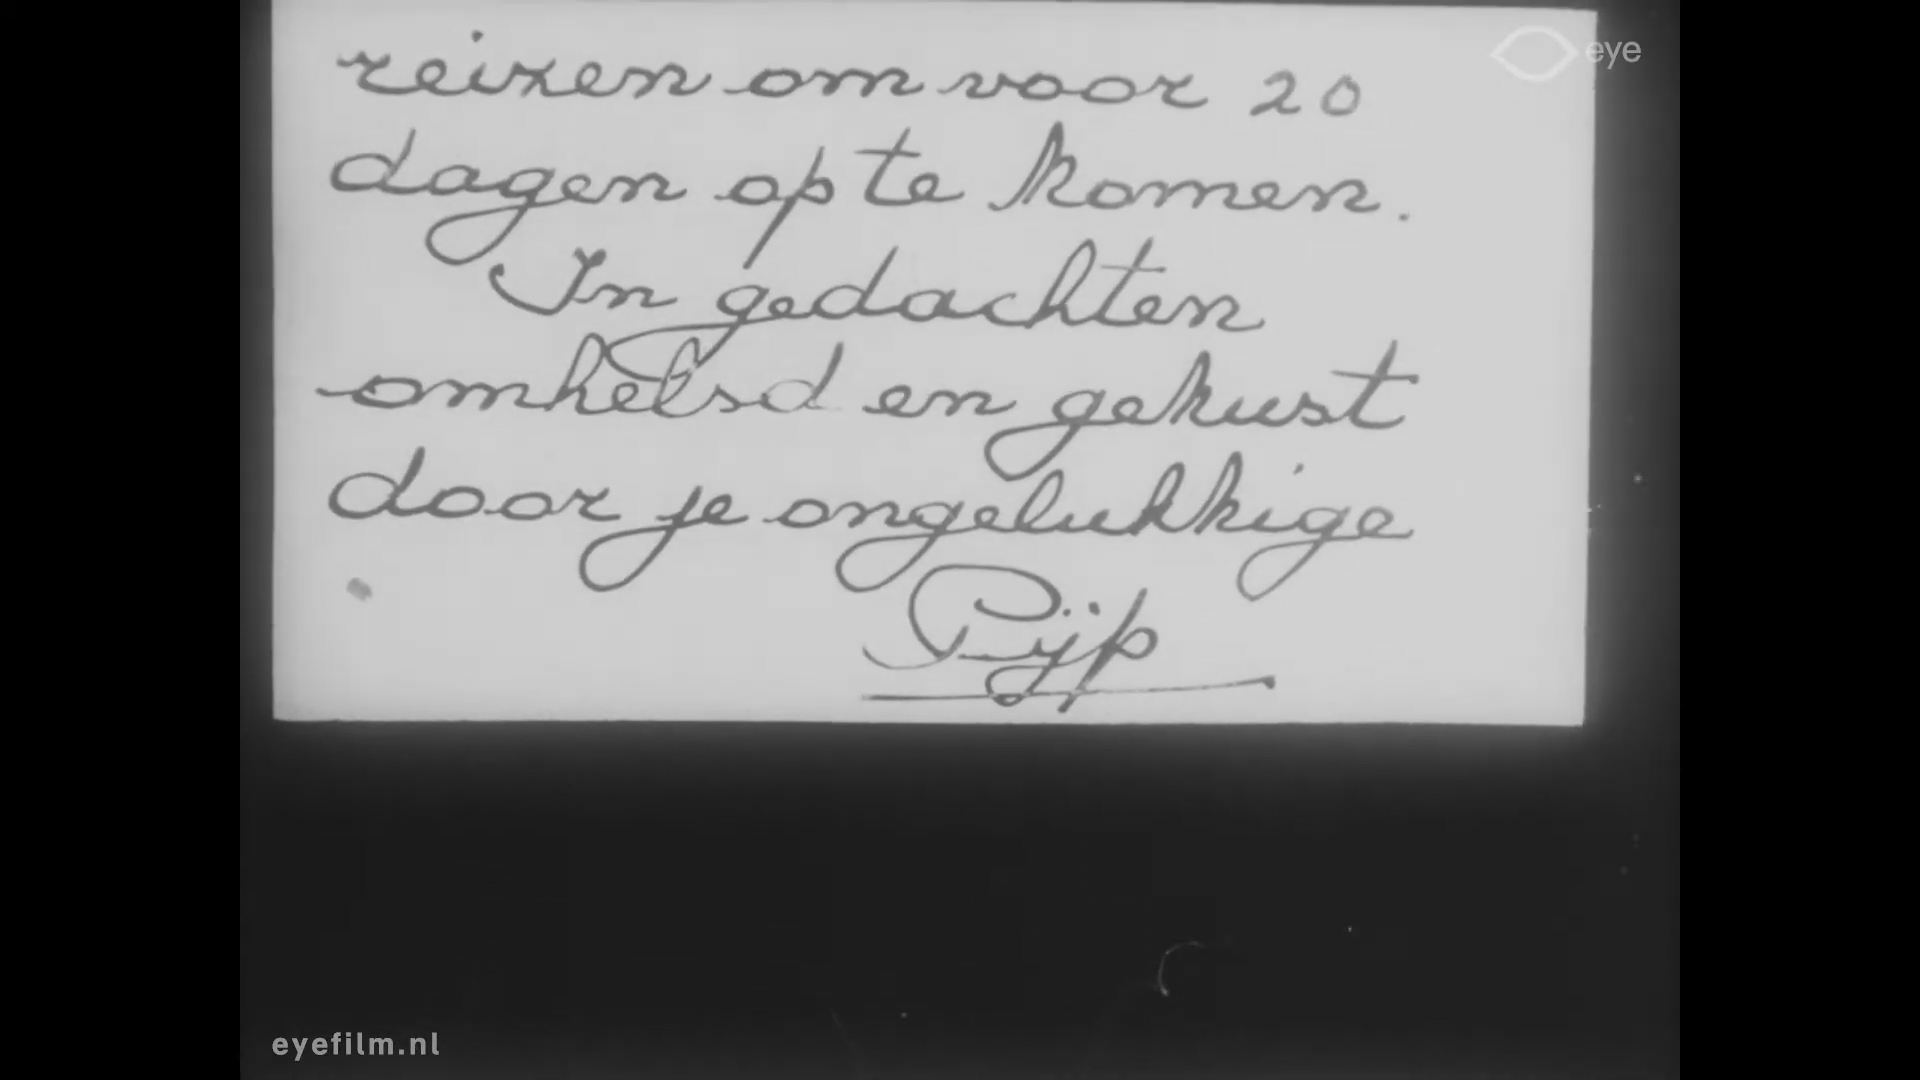 eye
reizen om voor 20
dagen op te komen.
In gedachten
omhelsd en gekust
door je ongelukkige
Pijp
eyefilm.nl